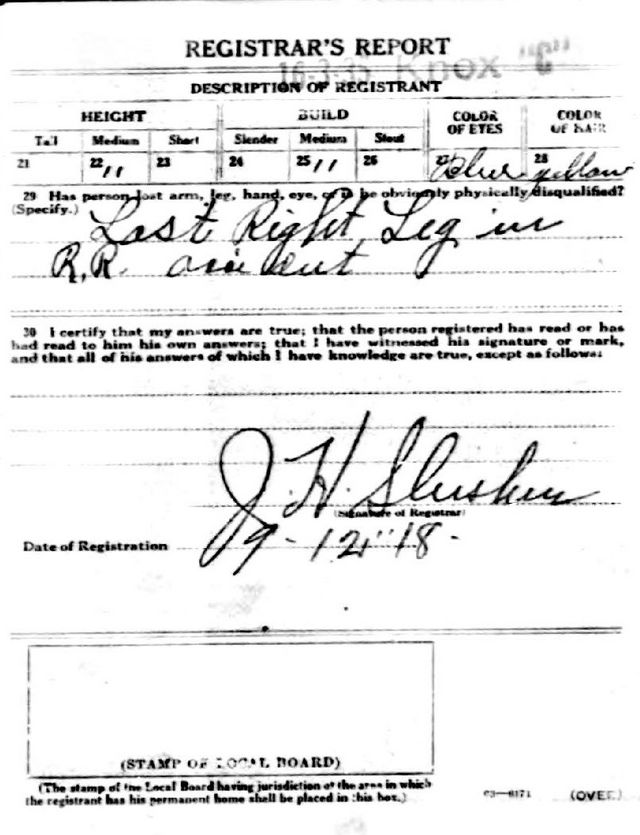 REGISTRAR'S REPORT
16-3-35 Knox "C"
DESCRIPTION OF REGISTRANT
HEIGHT BUILD COLOR OF EYES COLOR OF HAIR
Tall Medium Short Slender Medium Stout
21 22 11 23 24 25 11 26 27 Blue 28 yellow
29 Has person lost arm, leg, hand, eye, or is he obviously physically disqualified?
(Specify.) Lost Right Leg in
R.R. accident
30 I certify that my answers are true; that the person registered has read or has
had read to him his own answers; that I have witnessed his signature or mark,
and that all of his answers of which I have knowledge are true, except as follows:
J. H. Slusher
(Signature of Registrar)
Date of Registration 9-12-18-
(STAMP OF LOCAL BOARD)
(The stamp of the Local Board having jurisdiction of the area in which
the registrant has his permanent home shall be placed in this box.)
03—6171 (OVER)